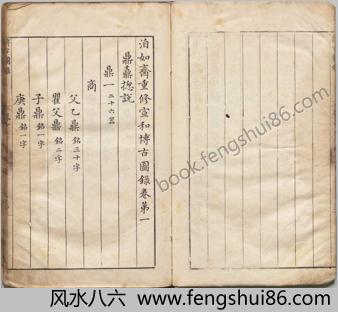 泊如齋重修宣和博古圖錄卷第一
鼎鼒摠說
鼎一 二十六器
商
父乙鼎 銘三十字
瞿父鼎 銘二字
子鼎 銘一字
庚鼎 銘一字
book.fengshui86.com
风水八六 www.fengshui86.com